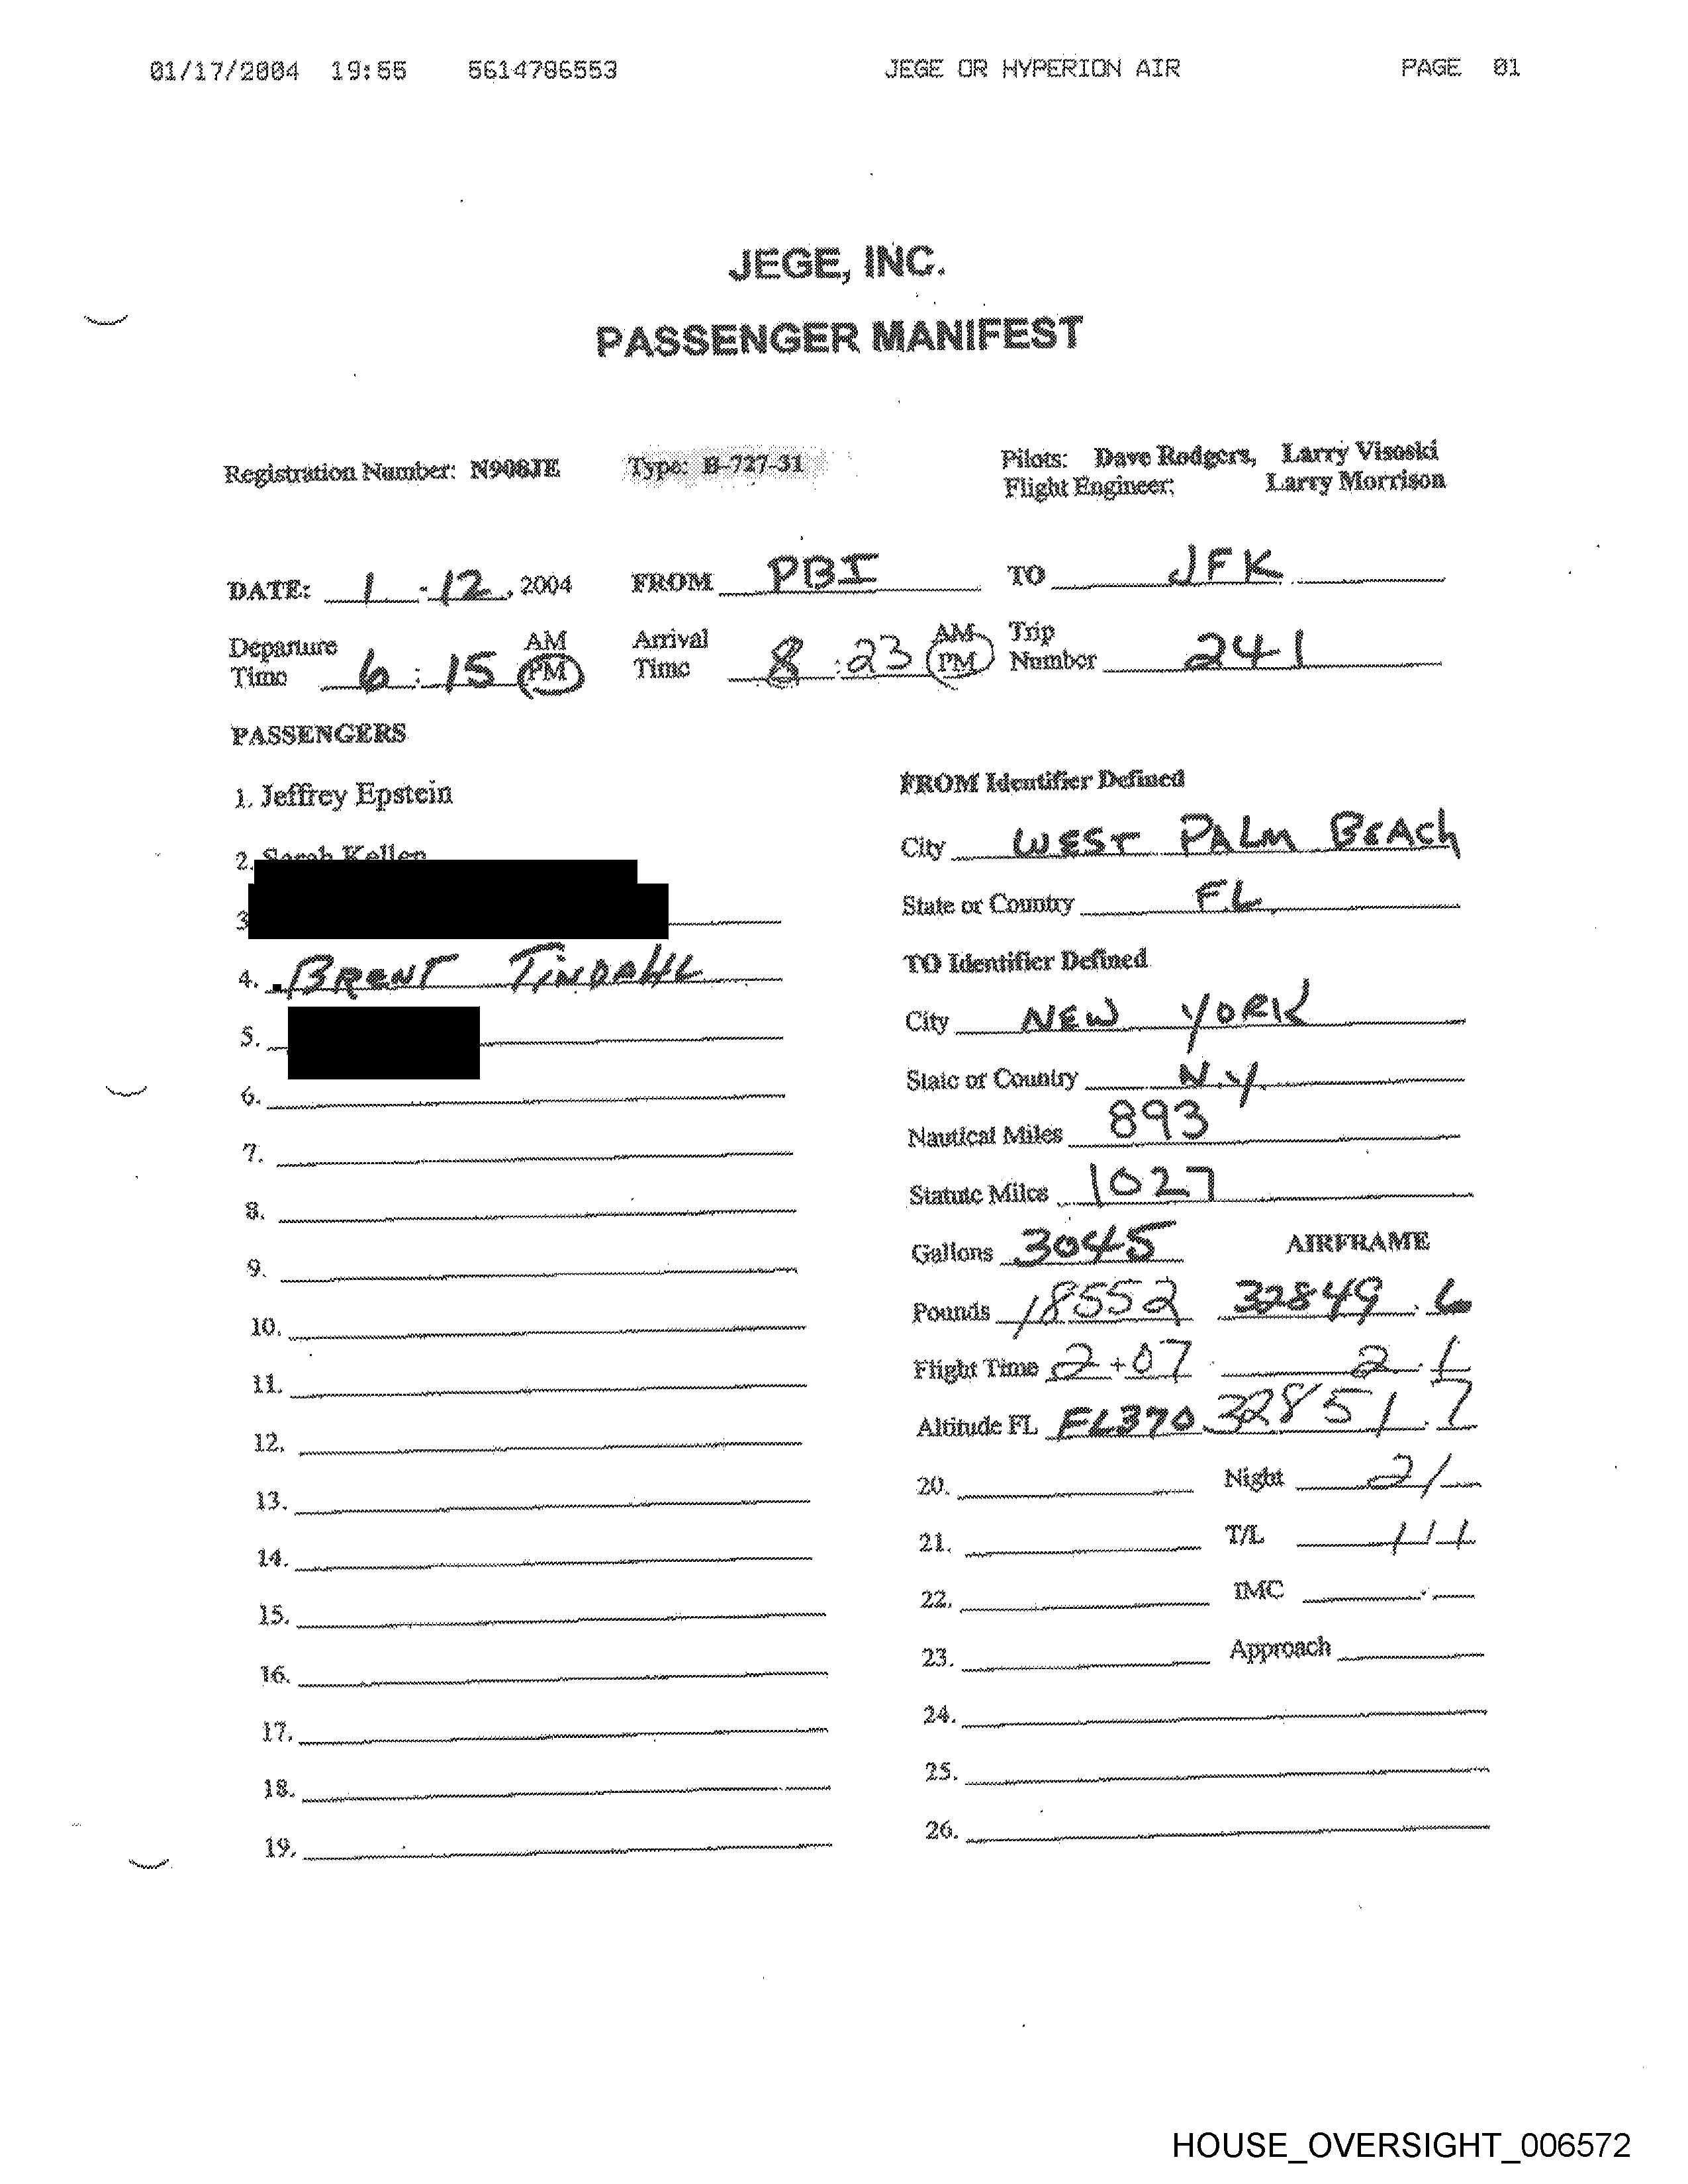 01/17/2004 19:55 5614786553 JEGE OR HYPERION AIR PAGE 01
JEGE, INC.
PASSENGER MANIFEST
Registration Number: N908JE Type: B-727-31 Pilots: Dave Rodgers, Larry Visoski
Flight Engineer: Larry Morrison
DATE: 1 - 12, 2004 FROM PBI TO JFK
Departure Time 6 : 15 AM PM Arrival Time 8 : 23 AM PM Trip Number 241
PASSENGERS
1. Jeffrey Epstein
2.
3
4. BRENT TINDALL
5.
6.
7.
8.
9.
10.
11.
12.
13.
14.
15.
16.
17.
18.
19.
FROM Identifier Defined
City WEST PALM BEACH
State or Country FL
TO Identifier Defined
City NEW YORK
State or Country N.Y.
Nautical Miles 893
Statute Miles 1027
Gallons 3045 AIRFRAME
Pounds 18552 32849.6
Flight Time 2+07 2.1
Altitude FL FL370 32851.7
20. Night 2/
21. T/L 1/1
22. IMC
23. Approach
24.
25.
26.
HOUSE_OVERSIGHT_006572